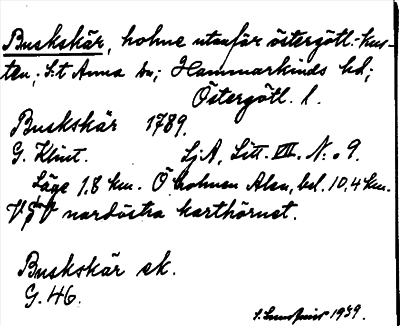 Buskskär, holme utanför östergötl.-kus-
ten; S:t Anna sn; Hammarkinds hd;
Östergötl. l.
Buskskär 1789.
G. Klint. SjA, Litt. VIII. N:o 9.
Läge 1,8 km. Ö holmen Alsn, bel. 10,4 km.
VSV nordöstra karthörnet.
Buskskär sk.
G. 46.
1939.